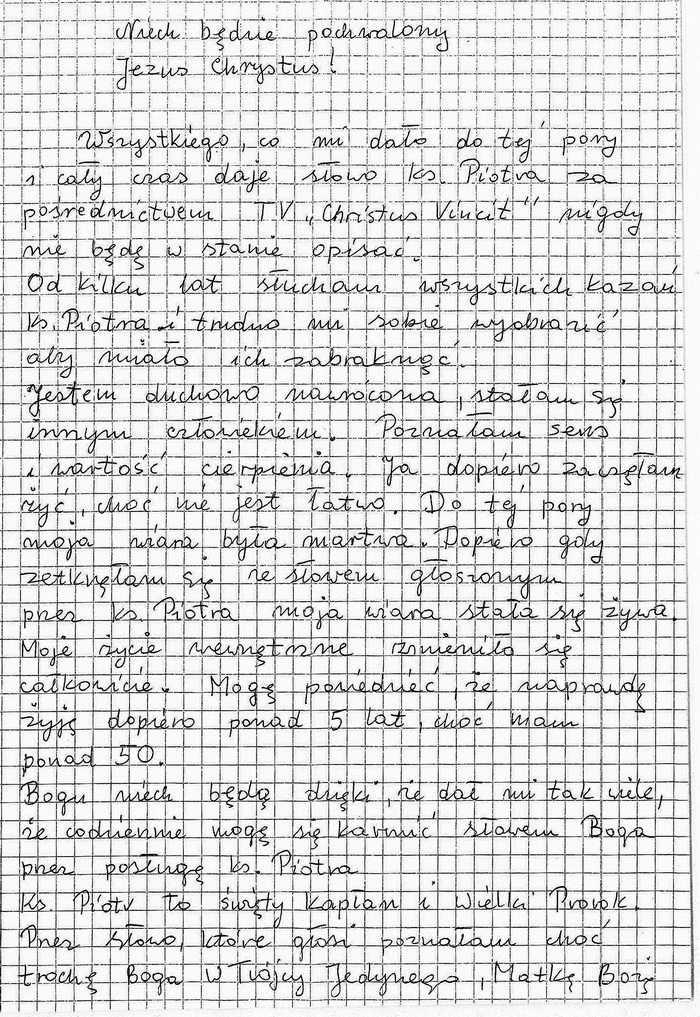 Niech będzie pochwalony
Jezus Chrystus!
Wszystkiego, co mi dało do tej pory
i cały czas daje słowo ks. Piotra za
pośrednictwem TV „Christus Vincit" nigdy
nie będę w stanie opisać.
Od kilku lat słucham wszystkich kazań
ks. Piotra i trudno mi sobie wyobrazić
aby miało ich zabraknąć.
Jestem duchowo nawrócona, stałam się
innym człowiekiem. Poznałam sens
i wartość cierpienia. Ja dopiero zaczęłam
żyć, choć nie jest łatwo. Do tej pory
moja wiara była martwa. Dopiero gdy
zetknęłam się ze słowem głoszonym
przez ks. Piotra moja wiara stała się żywa.
Moje życie wewnętrzne zmieniło się
całkowicie. Mogę powiedzieć, że naprawdę
żyję dopiero ponad 5 lat, choć mam
ponad 50.
Bogu niech będą dzięki, że dał mi tak wiele,
że codziennie mogę się karmić słowem Boga
przez posługę ks. Piotra
Ks. Piotr to święty Kapłan i Wielki Prorok.
Przez słowo, które głosi poznałam choć
trochę Boga w Trójcy Jedynego, Matkę Bożą